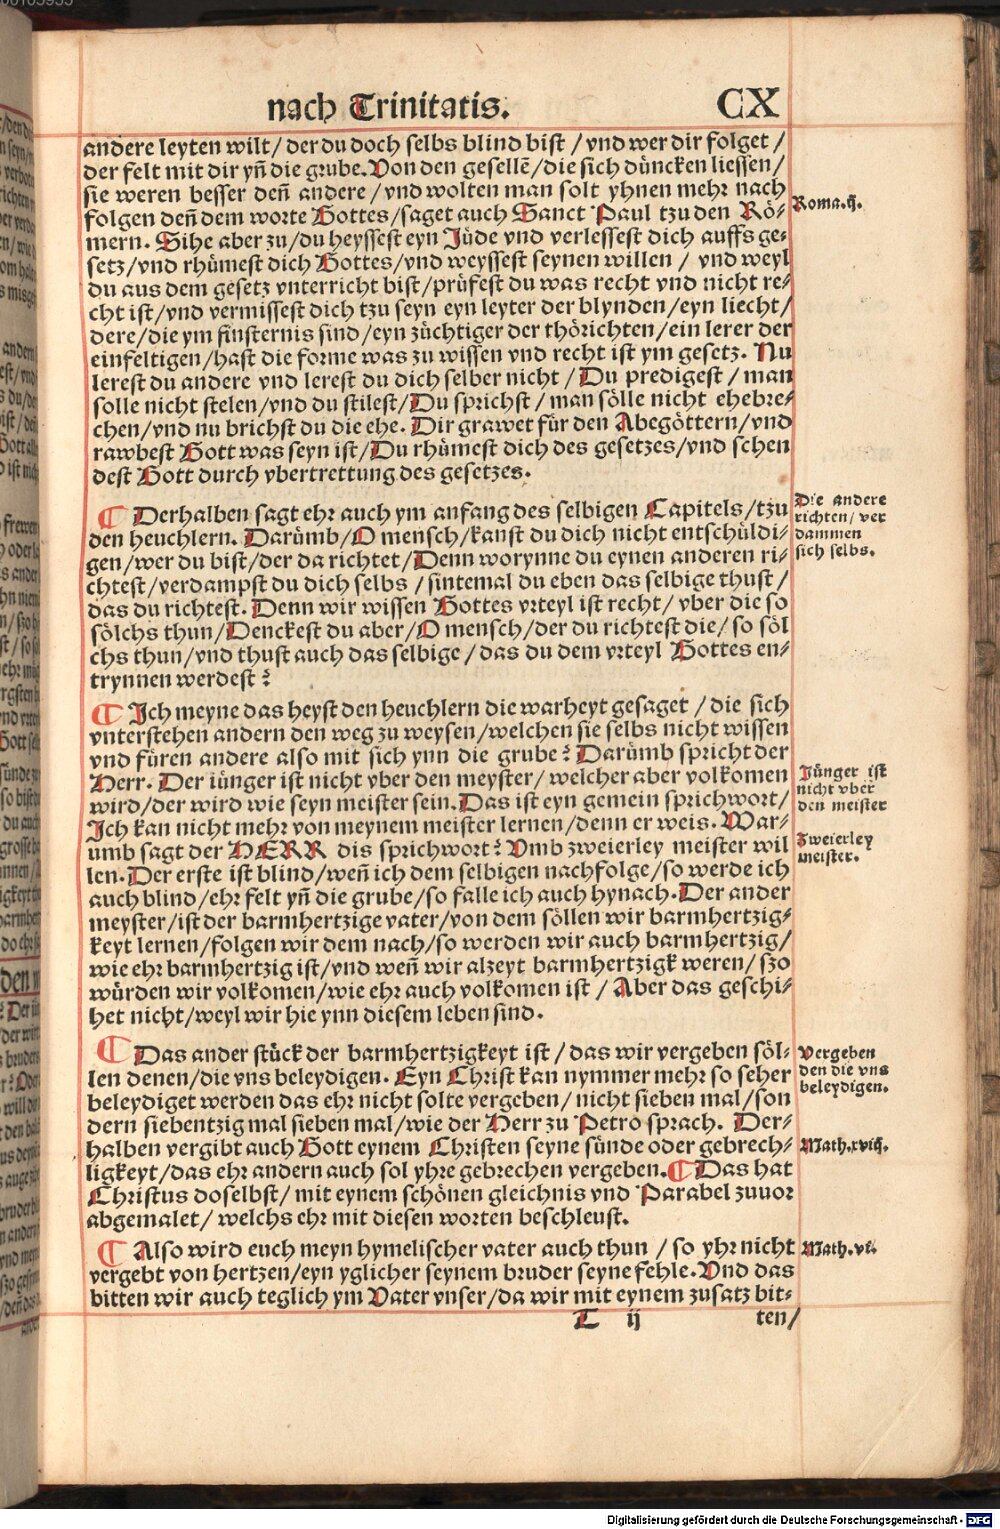 nach Trinitatis. CX
andere leyten wilt/ der du doch selbs blind bist / vnd wer dir folget /
der felt mit dir yñ die grube. Von den gesellē/die sich düncken liessen/
sie weren besser deñ andere / vnd wolten man solt yhnen mehr nach
folgen deñ dem worte Gottes/saget auch Sanct Paul tzu den Rö-
mern. Sihe aber zu/du heyssest eyn Jüde vnd verlessest dich auffs ge-
setz/vnd rhümest dich Gottes/vnd weyssest seynen willen / vnd weyl
du aus dem gesetz vnterricht bist/prüfest du was recht vnd nicht re-
cht ist/vnd vermissest dich tzu seyn eyn leyter der blynden/eyn liecht/
dere/die ym finsternis sind/eyn züchtiger der thörichten/ein lerer der
einfeltigen/hast die forme was zu wissen vnd recht ist ym gesetz. Nu
lerest du andere vnd lerest du dich selber nicht / Du predigest / man
solle nicht stelen/vnd du stilest/Du sprichst / man sölle nicht ehebre-
chen/vnd nu brichst du die ehe. Dir grawet für den Abegöttern/vnd
rawbest Gott was seyn ist/Du rhümest dich des gesetzes/vnd schen
dest Gott durch vbertrettung des gesetzes.
Roma.ij.
¶ Derhalben sagt ehr auch ym anfang des selbigen Capitels/tzu
den heuchlern. Darümb/O mensch/kanst du dich nicht entschüldi-
gen/wer du bist/der da richtet/Denn worynne du eynen anderen ri-
chtest/verdampst du dich selbs / sintemal du eben das selbige thust/
das du richtest. Denn wir wissen Gottes vrteyl ist recht/ vber die so
sölchs thun/Denckest du aber/O mensch/der du richtest die/ so söl
chs thun/vnd thust auch das selbige / das du dem vrteyl Gottes en-
trynnen werdest?
Die andere
richten/ ver
dammen
sich selbs.
¶ Ich meyne das heyst den heuchlern die warheyt gesaget / die sich
vnterstehen andern den weg zu weysen/welchen sie selbs nicht wissen
vnd füren andere also mit sich ynn die grube? Darümb spricht der
Herr. Der iünger ist nicht vber den meyster/ welcher aber volkomen
wird/der wird wie seyn meister sein. Das ist eyn gemein sprichwort/
Ich kan nicht mehr von meynem meister lernen/denn er weis. War-
umb sagt der HERR dis sprichwort? Vmb zweierley meister wil
len. Der erste ist blind/weñ ich dem selbigen nachfolge/so werde ich
auch blind/ehr felt yñ die grube/so falle ich auch hynach. Der ander
meyster/ist der barmhertzige vater/von dem söllen wir barmhertzig-
keyt lernen/folgen wir dem nach/so werden wir auch barmhertzig/
wie ehr barmhertzig ist/vnd weñ wir alzeyt barmhertzigk weren/ szo
würden wir volkomen/wie ehr auch volkomen ist / Aber das geschi-
het nicht/weyl wir hie ynn diesem leben sind.
Jünger ist
nicht vber
den meister
Zweierley
meister.
¶ Das ander stück der barmhertzigkeyt ist / das wir vergeben söl-
len denen/die vns beleydigen. Eyn Christ kan nymmer mehr so seher
beleydiget werden das ehr nicht solte vergeben/ nicht sieben mal/son
dern siebentzig mal sieben mal/wie der Herr zu Petro sprach. Der-
halben vergibt auch Gott eynem Christen seyne sünde oder gebrech-
ligkeyt/das ehr andern auch sol yhre gebrechen vergeben. ¶ Das hat
Christus doselbst/ mit eynem schönen gleichnis vnd Parabel zuuor
abgemalet/ welchs ehr mit diesen worten beschleust.
Vergeben
den die vns
beleydigen.
Math.xviij.
¶ Also wird euch meyn hymelischer vater auch thun / so yhr nicht
vergebt von hertzen/eyn yglicher seynem bruder seyne fehle. Vnd das
bitten wir auch teglich ym Vater vnser/da wir mit eynem zusatz bit-
Math.vi.
T ij ten/
Digitalisierung gefördert durch die Deutsche Forschungsgemeinschaft - DFG